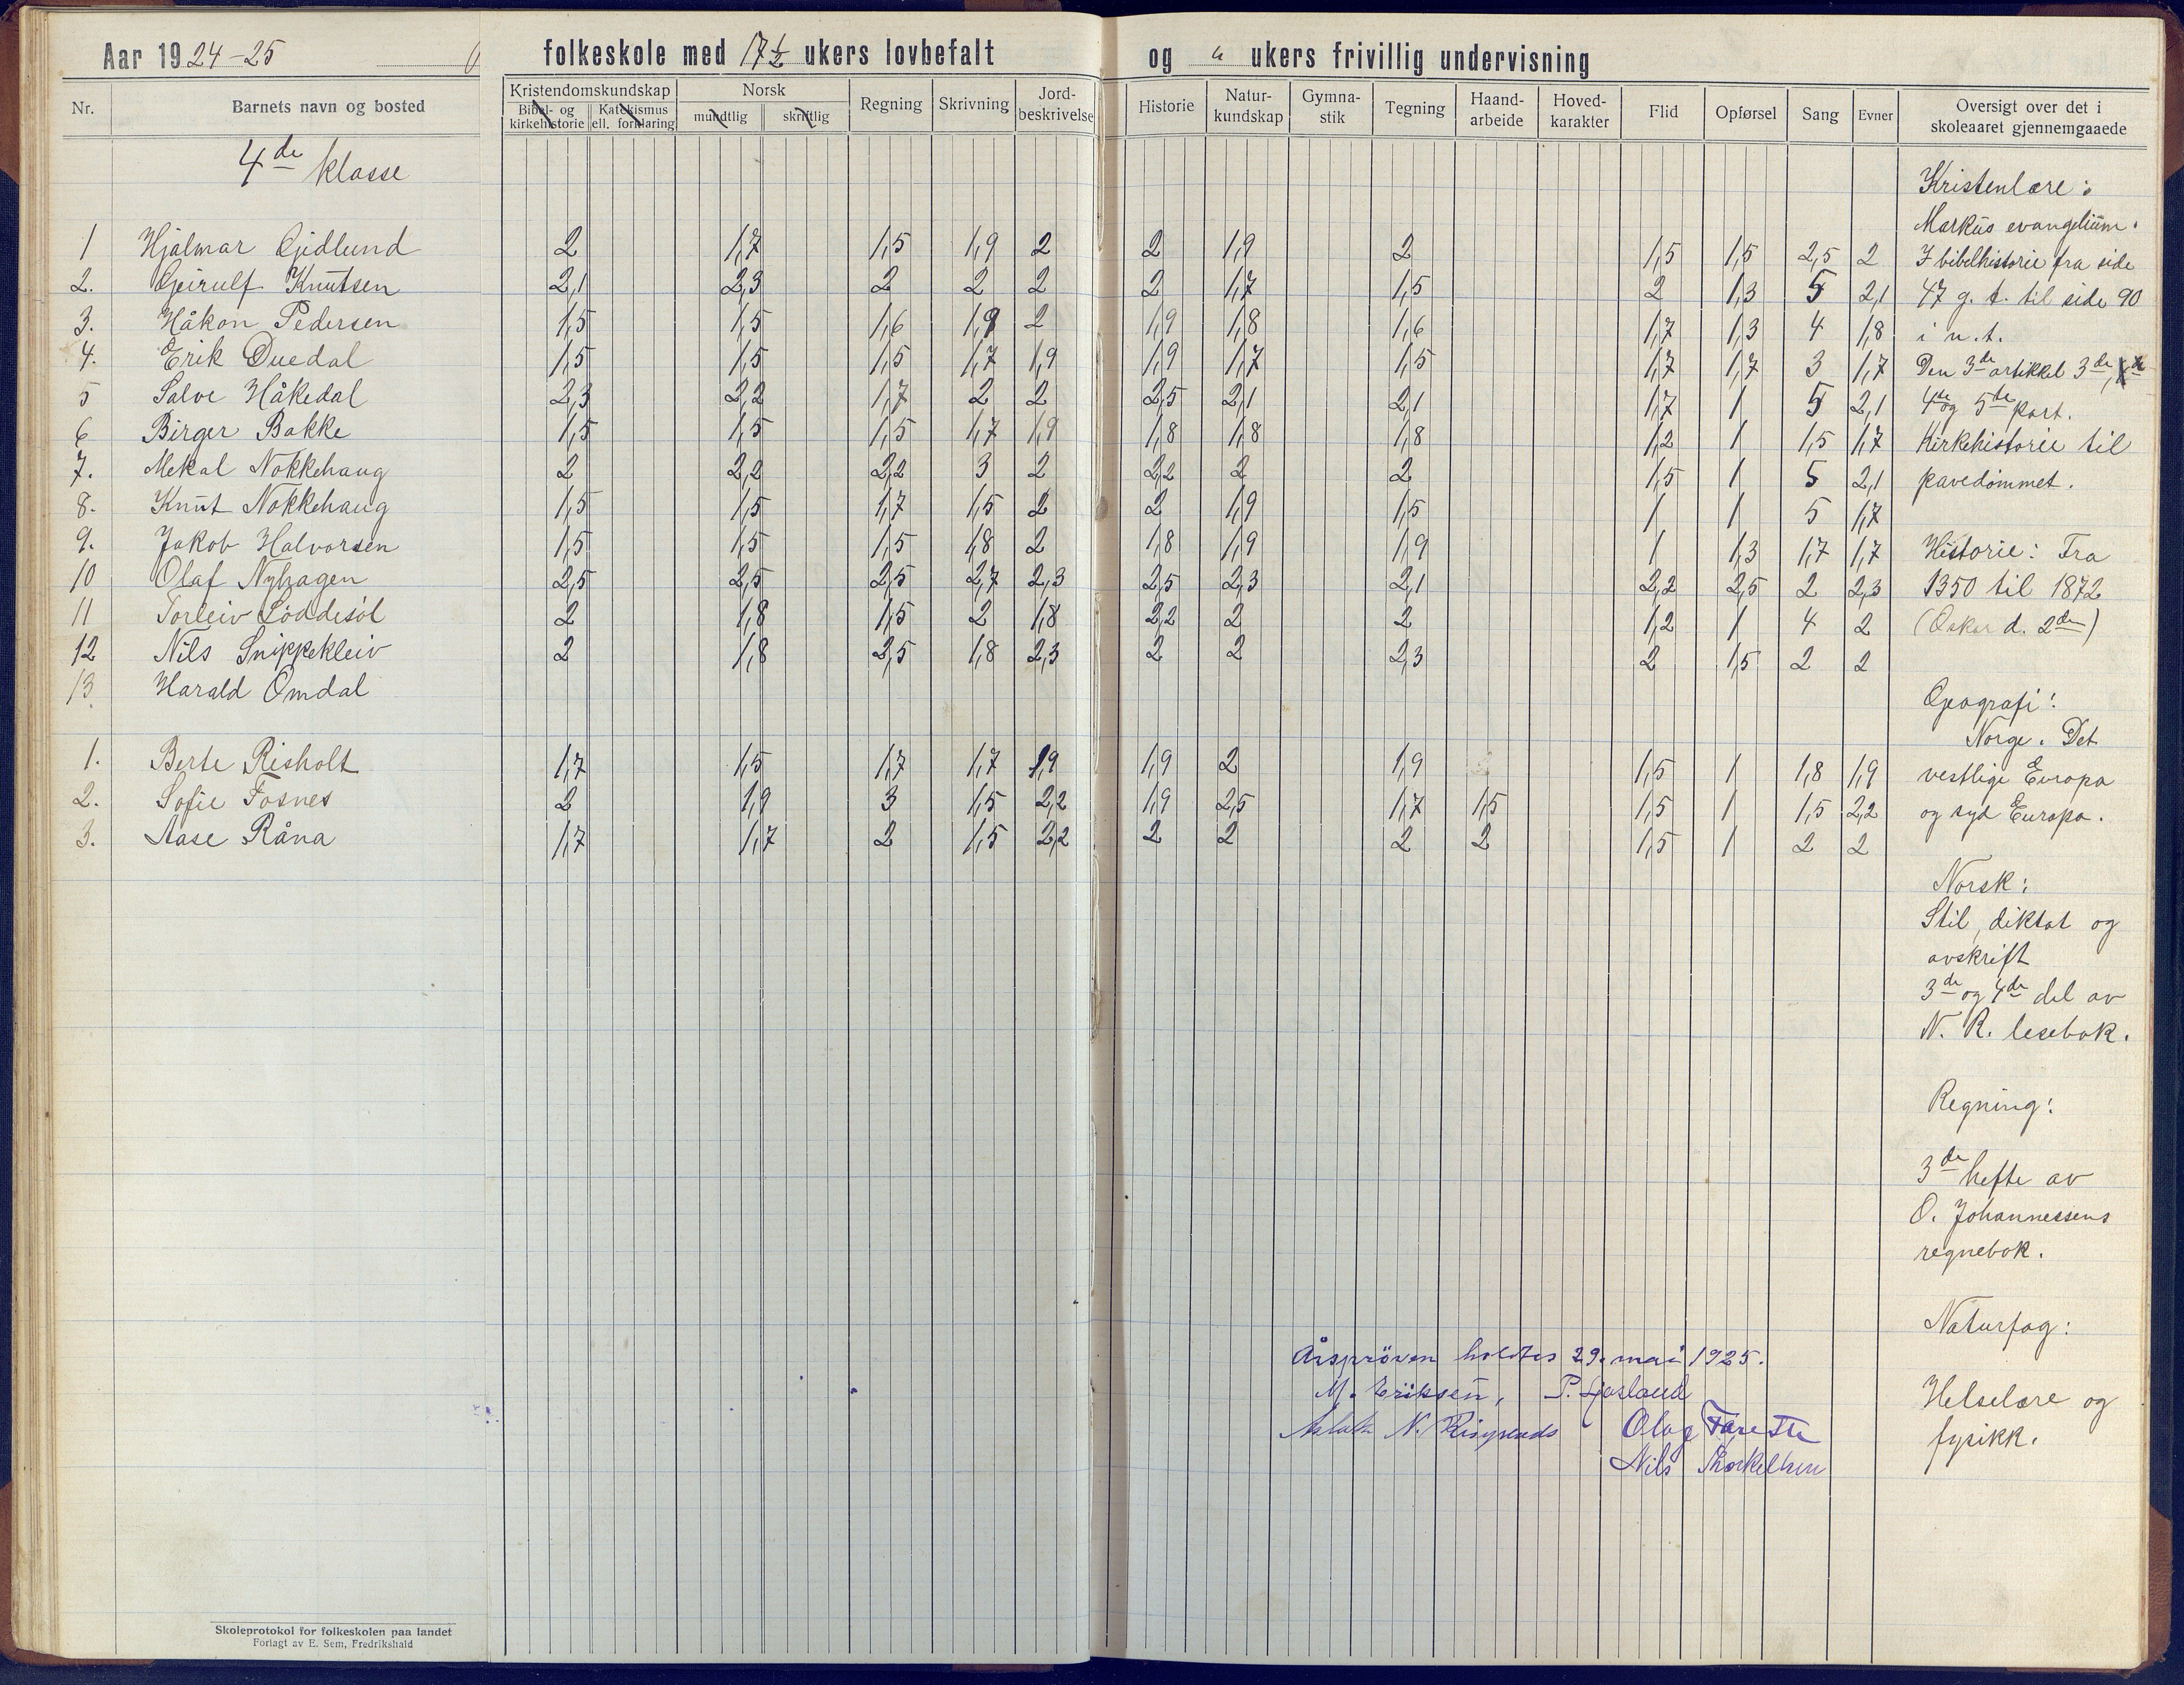 Aar 1924-25 folkeskole med 17½ ukers lovbefalt og " ukers frivillig undervisning
Nr. Barnets navn og bosted Kristendomskundskap Bibel- og kirkehistorie Katekismus ell. forklaring Norsk mundtlig skriftlig Regning Skrivning Jord- beskrivelse Historie Natur- kundskap Gymna- stik Tegning Haand- arbeide Hoved- karakter Flid Opførsel Sang Evner Oversigt over det i skoleaaret gjennemgaaede
4de klasse
1 Hjalmar Gjedlund 2 1,7 1,5 1,9 2 2 1,9 2 1,5 1,5 2,5 2
2. Geirulf Knutsen 2,1 2,3 2 2 2 2 1,7 1,5 2 1,3 5 2,1
3. Håkon Pedersen 1,5 1,5 1,6 1,9 2 1,9 1,8 1,6 1,7 1,3 4 1,8
4. Erik Duedal 1,5 1,5 1,5 1,7 1,9 1,9 1,7 1,5 1,7 1,7 3 1,7
5 Salve Håkedal 2,3 2,2 1,7 2 2 2,5 2,1 2,1 1,7 1 5 2,1
6 Birger Bakke 1,5 1,5 1,5 1,7 1,9 1,8 1,8 1,8 1,2 1 1,5 1,7
7. Mekal Nokkehaug 2 2,2 2,2 3 2 2,2 2 2 1,5 1 5 2,1
8. Knut Nokkehaug 1,5 1,5 1,7 1,5 2 2 1,9 1,5 1 1 5 1,7
9. Jakob Halvorsen 1,5 1,5 1,5 1,8 2 1,8 1,9 1,9 1 1,3 1,7 1,7
10 Olaf Nyhagen 2,5 2,5 2,5 2,7 2,3 2,5 2,3 2,1 2,2 2,5 2 2,3
11 Torleiv Löddesöl 2 1,8 1,5 2 1,8 2,2 2 2 1,2 1 4 2
12 Nils Snippekleiv 2 1,8 2,5 1,8 2,3 2 2 2,3 2 1,5 2 2
13 Harald Omdal
1. Berte Risholt 1,7 1,5 1,7 1,7 1,9 1,9 2 1,9 1,5 1 1,8 1,9
2. Sofie Fosnes 2 1,9 3 1,5 2,2 1,9 2,5 1,7 1,5 1,5 1 1,5 2,2
3. Aase Råna 1,7 1,7 2 1,5 2,2 2 2 2 2 1,5 1 2 2
Kristenlære:
Markus evangelium.
I bibelhistorie fra side
47 g. t. til side 90
i n. t.
Den 3de artikkel 3de,
4de og 5te part.
Kirkehistorie til
pavedömmet.
Historie: Fra
1350 til 1872
(Oskar d. 2den)
Geografi:
Norge. Det
vestlige Europa
og syd Europa.
Norsk:
Stil, diktat og
avskrift
3de og 4de del av
N. R. lesebok.
Regning:
3de hefte av
O. Johannessens
regnebok.
Naturfag:
Helselære og
fysikk.
Årspröven holdtes 29. mai 1925.
M. Eriksen, P. Fjosland
Aslak N. Olav Tveite
Nils Thorkelsen
Skoleprotokol for folkeskolen paa landet
Forlagt av E. Sem, Fredrikshald